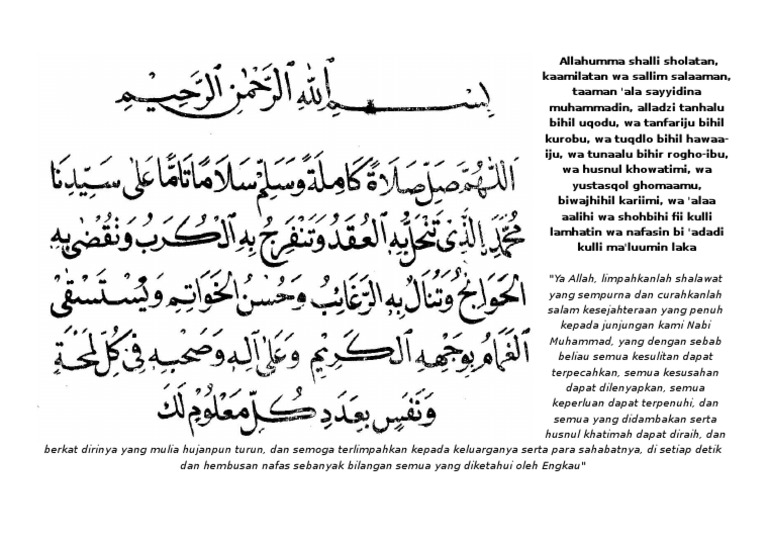 بِسْمِ اللهِ الرَّحْمٰنِ الرَّحِيْمِ
اَللّٰهُمَّ صَلِّ صَلَاةً كَامِلَةً وَسَلِّمْ سَلَامًا تَامًّا عَلٰى سَيِّدِنَا
مُحَمَّدِ ࣙالَّذِىْ تَنْحَلُّ بِهِ الْعُقَدُ وَتَنْفَرِجُ بِهِ الْكُرَبُ وَتُقْضٰى بِهِ
الْحَوَائِجُ وَتُنَالُ بِهِ الرَّغَائِبُ وَحُسْنُ الْخَوَاتِمِ وَيُسْتَسْقَى
الْغَمَامُ بِوَجْهِهِ الْكَرِيْمِ وَعَلٰى اٰلِهِ وَصَحْبِهِ فِيْ كُلِّ لَمْحَةٍ
وَنَفَسٍ بِعَدَدِ كُلِّ مَعْلُوْمٍ لَكَ
Allahumma shalli sholatan,
kaamilatan wa sallim salaaman,
taaman 'ala sayyidina
muhammadin, alladzi tanhalu
bihil uqodu, wa tanfariju bihil
kurobu, wa tuqdlo bihil hawaa-
iju, wa tunaalu bihir rogho-ibu,
wa husnul khowatimi, wa
yustasqol ghomaamu,
biwajhihil kariimi, wa 'alaa
aalihi wa shohbihi fii kulli
lamhatin wa nafasin bi 'adadi
kulli ma'luumin laka
"Ya Allah, limpahkanlah shalawat
yang sempurna dan curahkanlah
salam kesejahteraan yang penuh
kepada junjungan kami Nabi
Muhammad, yang dengan sebab
beliau semua kesulitan dapat
terpecahkan, semua kesusahan
dapat dilenyapkan, semua
keperluan dapat terpenuhi, dan
semua yang didambakan serta
husnul khatimah dapat diraih, dan
berkat dirinya yang mulia hujanpun turun, dan semoga terlimpahkan kepada keluarganya serta para sahabatnya, di setiap detik
dan hembusan nafas sebanyak bilangan semua yang diketahui oleh Engkau"